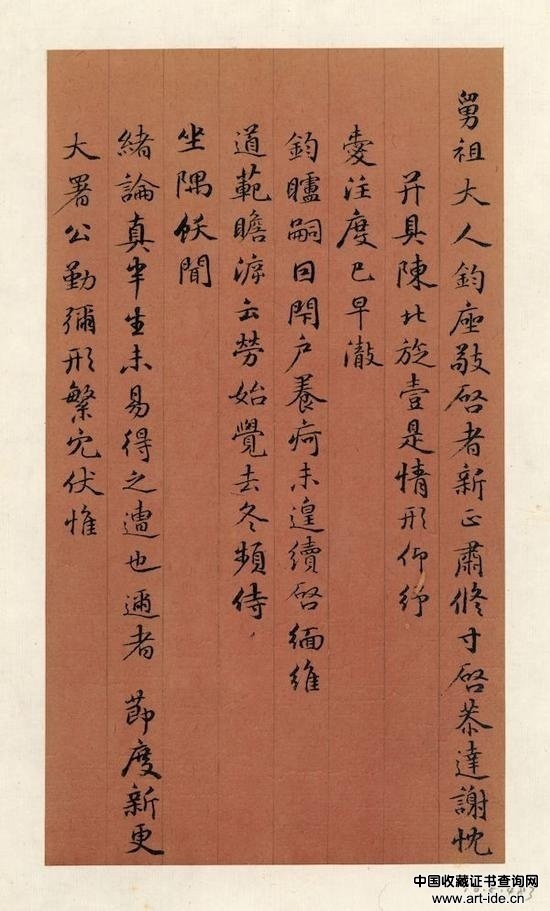 舅祖大人鈞座敬啓者新正肅修寸啓恭達謝忱
并具陳北旋壹是情形仰紓
愛注度已早澈
鈞矑嗣因閉户養疴未遑續啓緬維
道範瞻溯云勞始覺去冬頻侍
坐隅飫聞
緒論真半生未易得之遭也邇者 節度新更
大署公勤彌形繁冗伏惟
中国收藏证书查询网
www.art-ide.cn